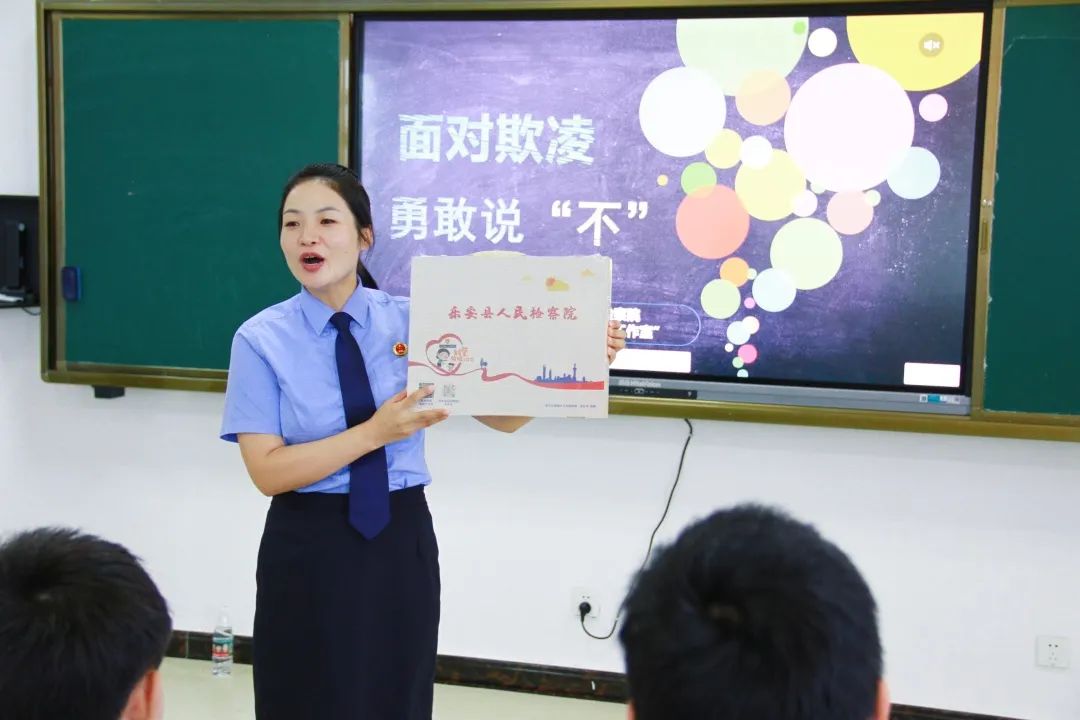 面对欺凌
勇敢说“不”
乐安县人民检察院